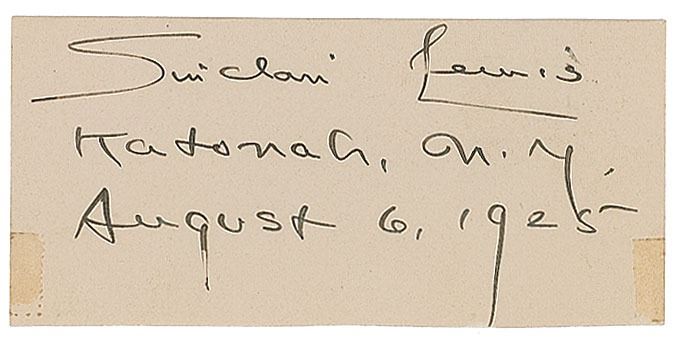 Sinclair Lewis
Katonah, N.Y.
August 6, 1925